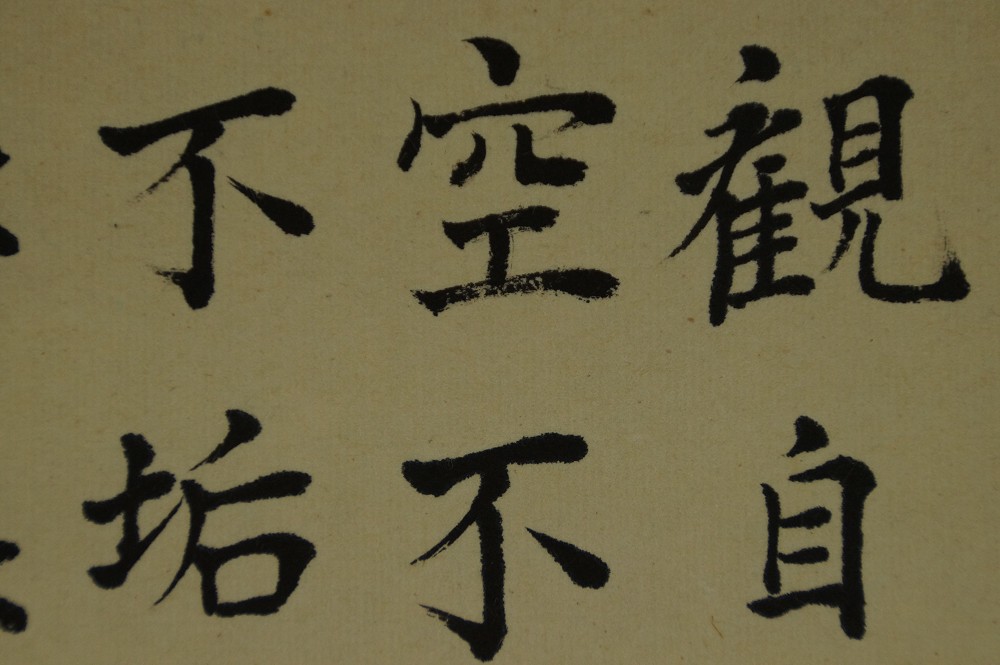 観自
空不
不垢